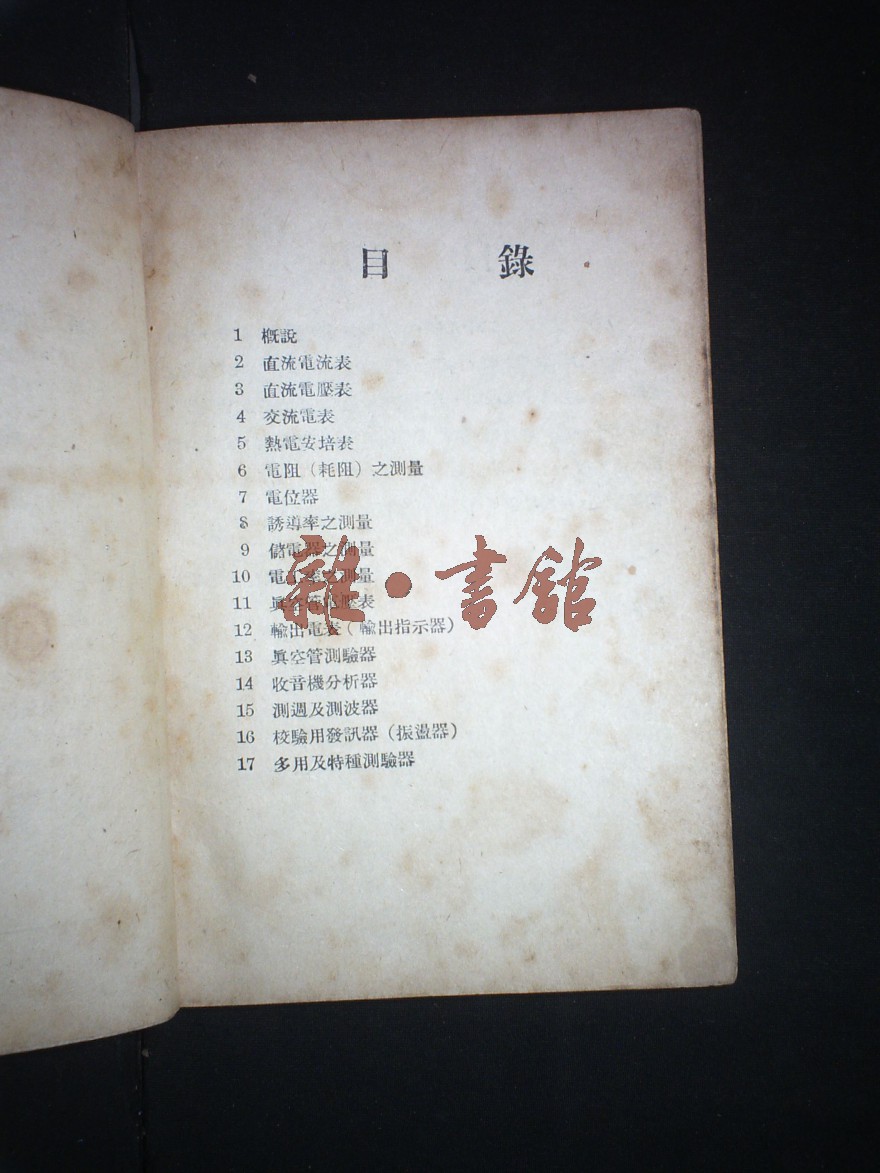 目 錄
1 概說
2 直流電流表
3 直流電壓表
4 交流電表
5 熱電安培表
6 電阻（耗阻）之測量
7 電位器
8 誘導率之測量
9 儲電器之測量
10 電 之測量
11 眞空管電壓表
12 輸出電表（輸出指示器）
13 眞空管測驗器
14 收音機分析器
15 測週及測波器
16 校驗用發訊器（振盪器）
17 多用及特種測驗器
雜·書館